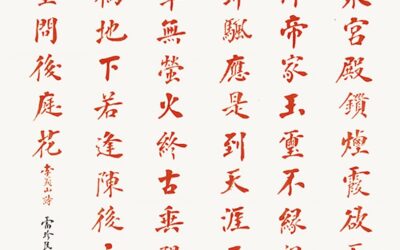 泉宮殿鎖煙霞欲
帝家玉璽不緣
颿應是到天涯
草無螢火終古垂
地下若逢陳後
問後庭花
李義山詩
雷珍民